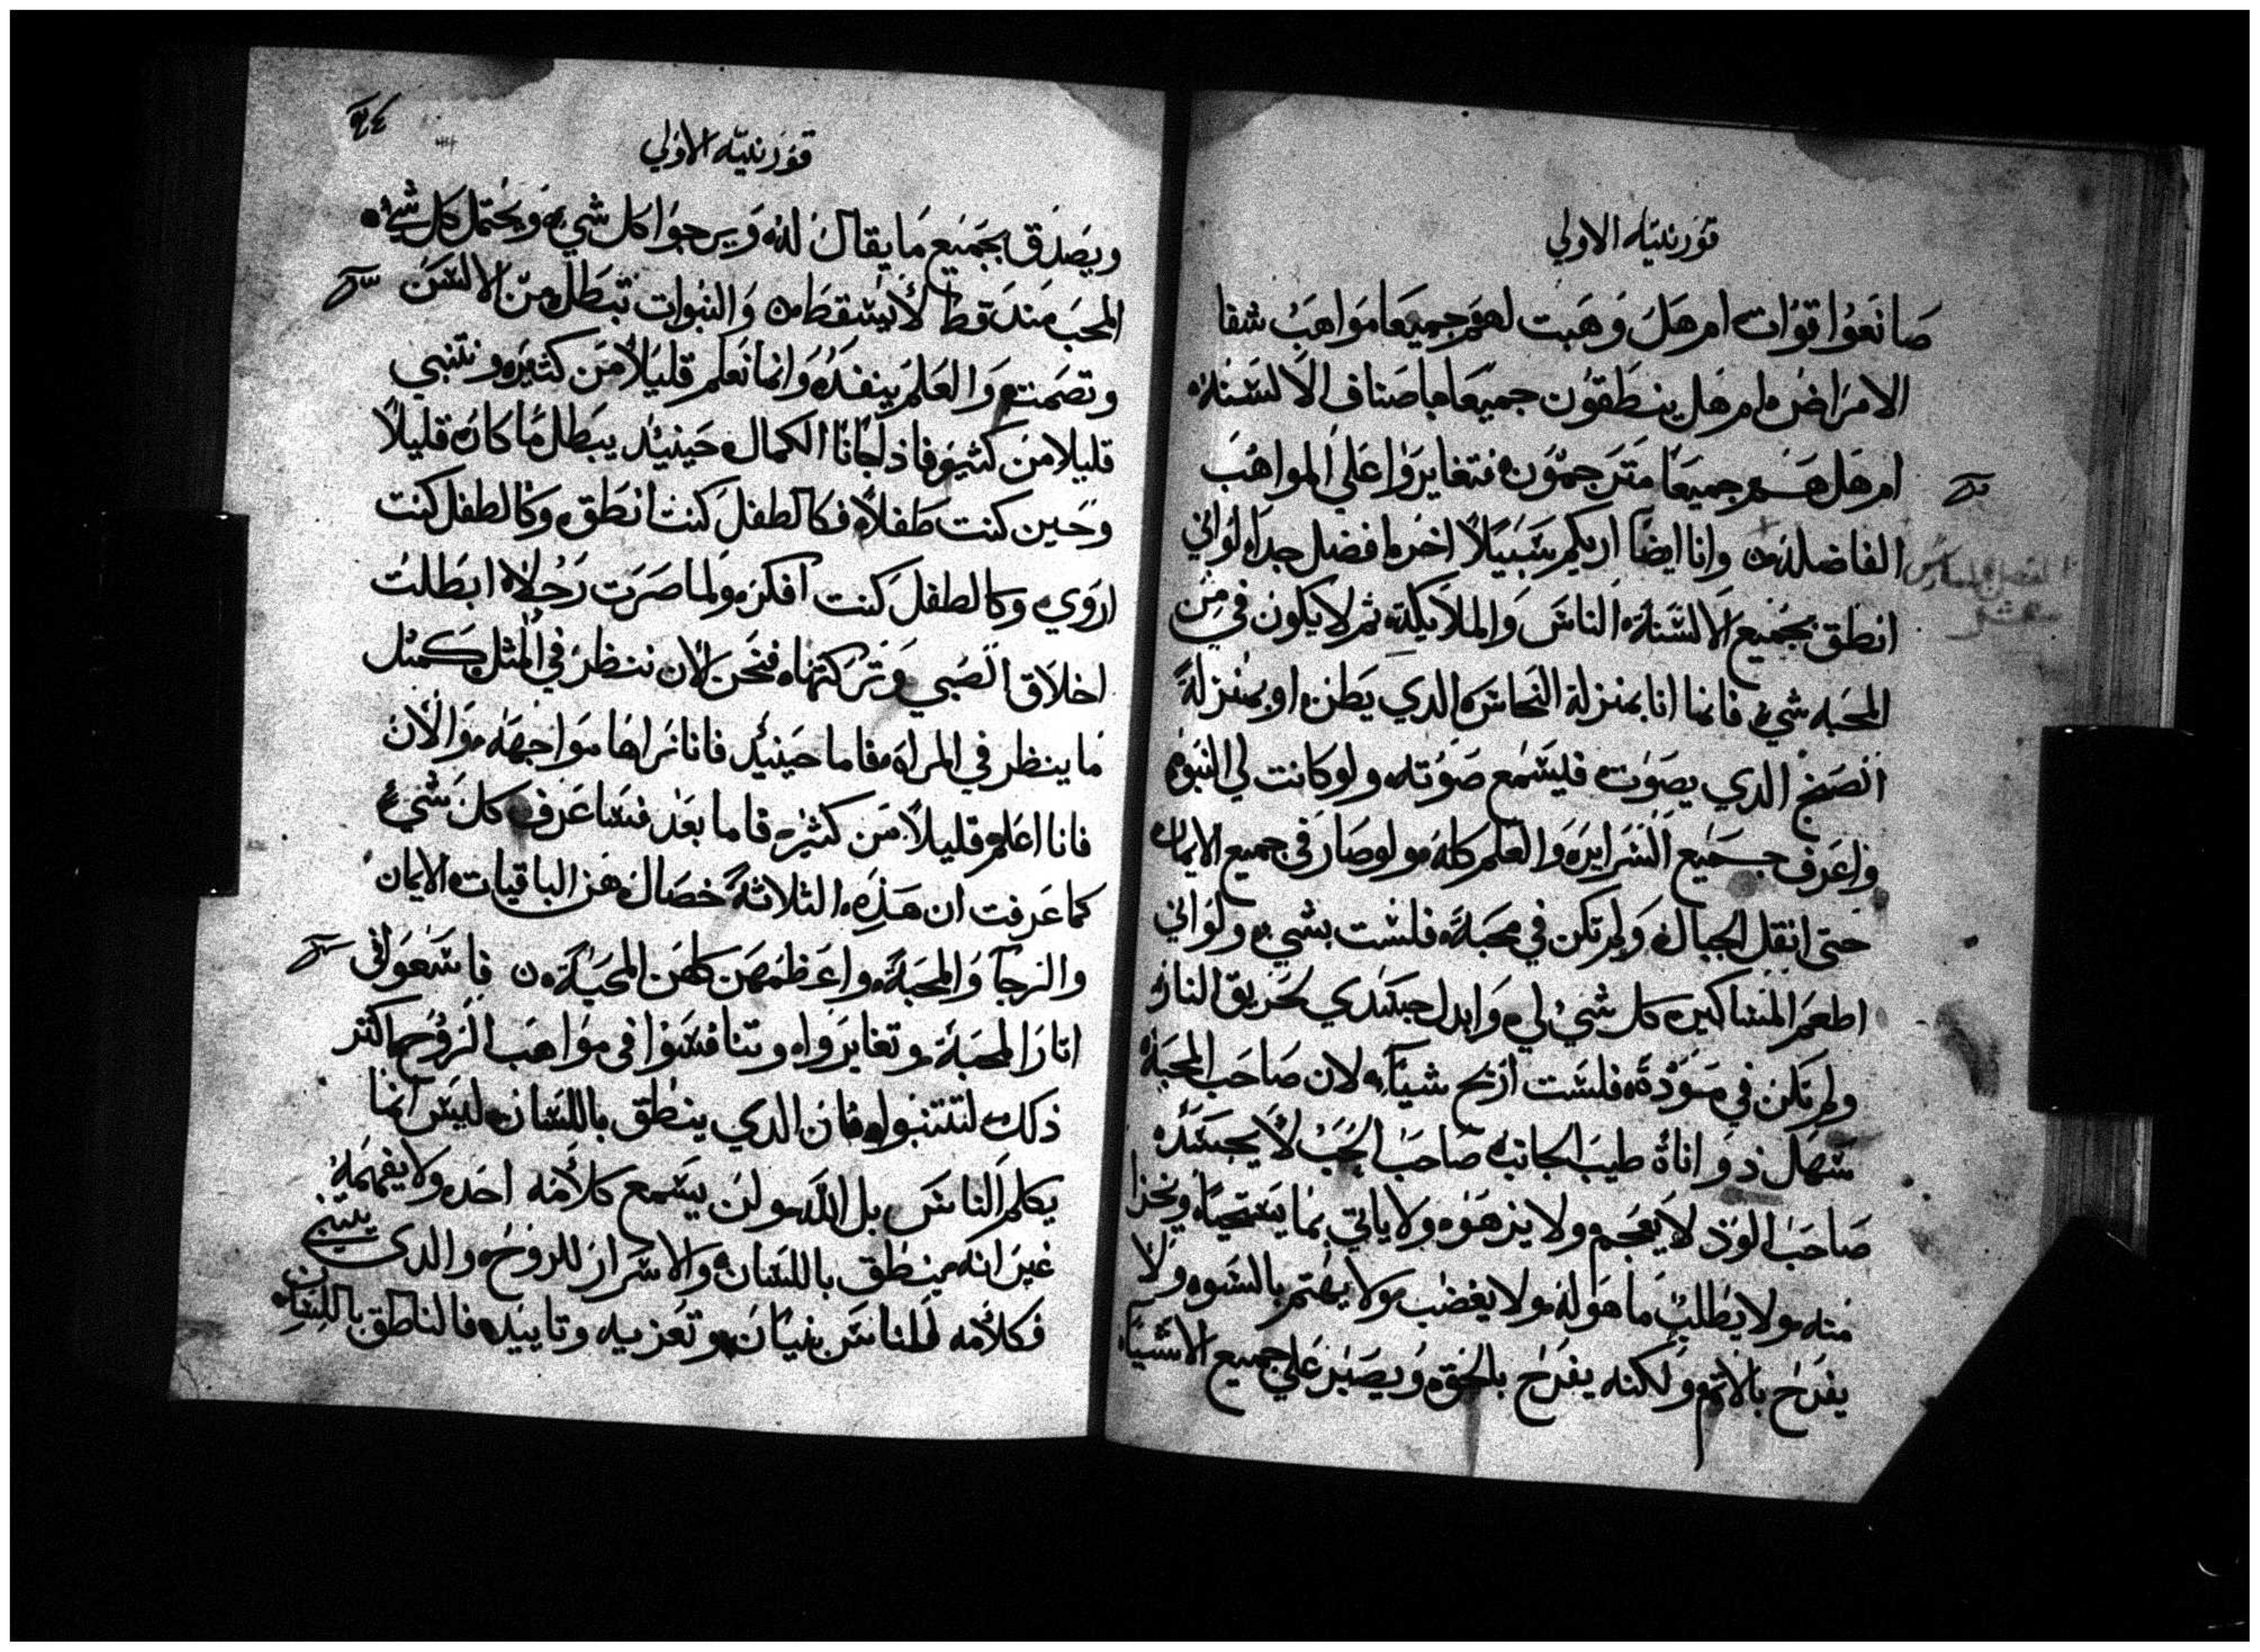 قورنتيه الاولي
صانعوا قوات ام هل وهبت لهم جميعا مواهب شفا
الامراض ام هل ينطقون جميعا باصناف الالسنه
ام هل هم جميعا مترجمون فتغايروا علي المواهب
الفاضله وانا ايضا اريكم سبيلا اخر افضل جدا لو اني
انطق بجميع السنة الناس والملايكة ثم لا يكون في من
المحبه شي فانما انا بمنزلة النحاس الدي يطن او بمنزلة
الصنج الدي يصوت فليسمع صوته ولو كانت لي النبوه
واعرف جميع السراير والعلم كله ولو صار في جميع الايمان
حتي انقل الجبال ولم تكن في محبة فلست بشي ولو اني
اطعم المساكين كل شي لي وابدل جسدي لحريق النار
ولم تكن في مودة فلست اربح شيا لان صاحب المحبة
سهل ذو اناة طيب الجانب صاحب الحب لا يحسد
صاحب الود لا يعجم ولا يزهوه ولا ياتي بما يستحيا ويخزا
منه ولا يطلب ما هو له ولا يغضب ولا يهتم بالسوه ولا
يفرح بالاثم ولكنه يفرح بالحق ويصبر علي جميع الاشيا
قورنتيه الاولي
ويصدق بجميع ما يقال له ويرجوا كل شي ويحتمل كل شي
المحب مند قط لا يسقط والنبوات تبطل من الالسن
وتصمت والعلم ينفد وانما نعلم قليلا من كثير ونتنبي
قليلا من كثير فاذا جانا الكمال حينيد يبطل ما كان قليلا
وحين كنت طفلا فكالطفل كنت انطق وكالطفل كنت
اروي وكالطفل كنت افكر ولما صرت رجلا ابطلت
اخلاق الصبي وتركتها فنحن الان ننظر في المثل كمثل
ما ينظر في المراه فاما حينيد فانا نراها مواجهه والان
فانا اعلم قليلا من كثير فاما بعد فساعرف كل شي
كما عرفت ان هذه الثلاثة خصال هن الباقيات الايمان
والرجا والمحبة واعظمهن كلهن المحبة فاسعوا في
اثار المحبة وتغايروا وتنافسوا في مواهب الروح اكثر
ذلك لتتنبوا فان الدي ينطق باللسان ليس انما
يكلم الناس بل الله ولن يسمع كلامه احد ولا يفهمه
غير انه ينطق باللسان والاسرار للروح والدي يتنبي
فكلامه للناس بنيان وتعزيه وتاييد فالناطق باللسان